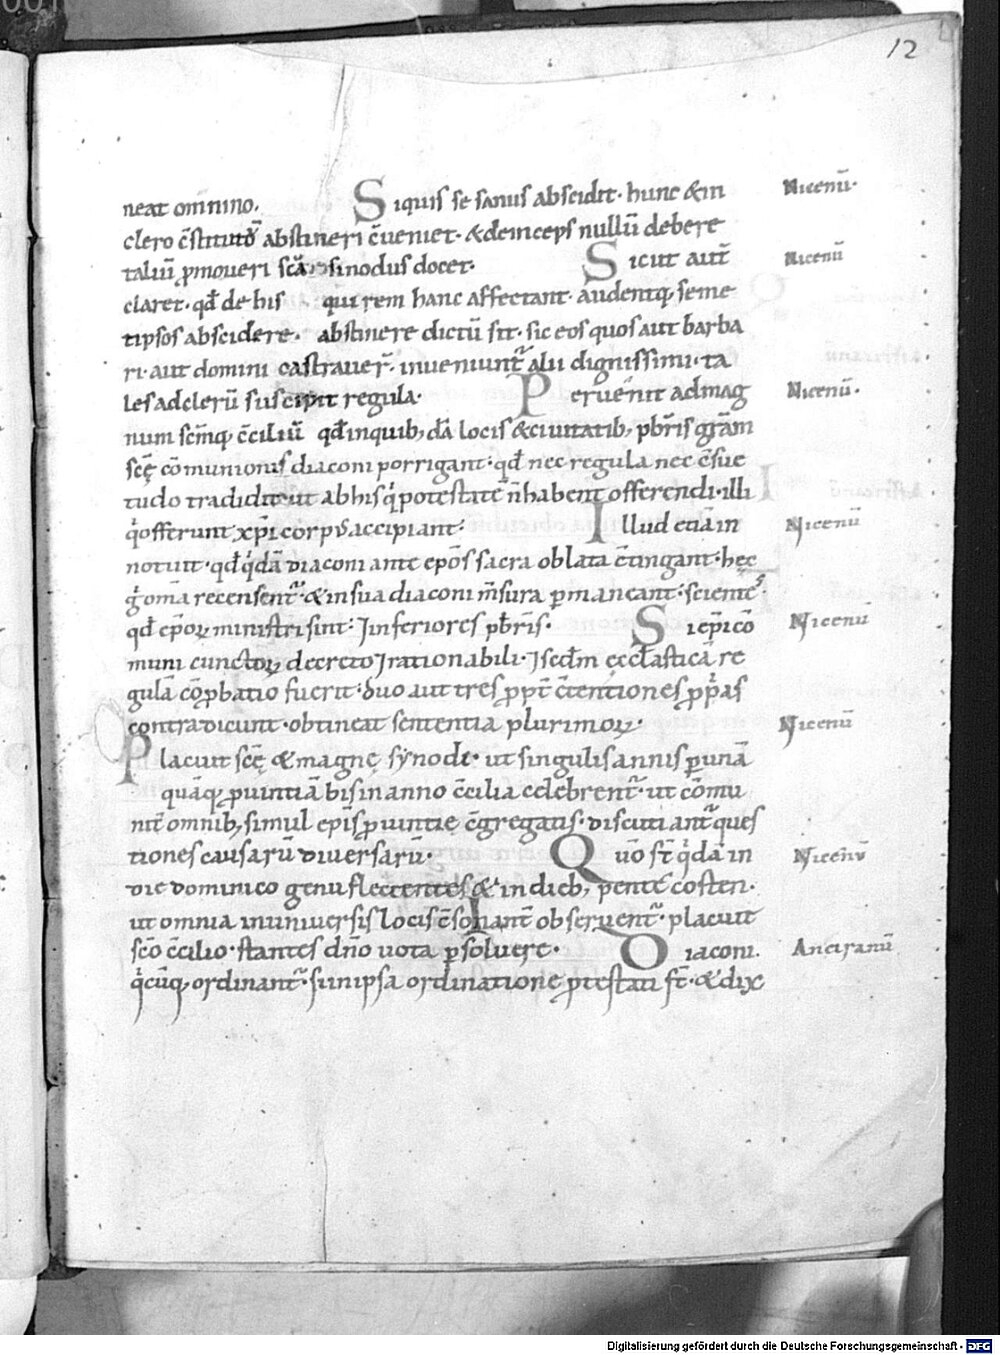 12
neat om̄nino. Siquis se sanus abscidit· hunc &in Nicenū·
clero c̄stitutū abstineri c̄ueniet· &deinceps nullū debere
taliū ꝓmoueri sc̄a sinodus docet· Sicut aut̄ Nicenū
claret· qđ de his qui rem hanc affectant· audentq; seme
tipsos abscidere· abstinere dictū sit· sic eos quos aut barba
ri· aut domini castrauer̄· inueniunt̄ alii dignissimi· ta
les adclerū suscipit regula· Peruēnit admag Nicenū·
num sc̄mq; c̄ciliū qđ inquib; dā locis &ciuitatib; pb̄ris gr̄am
sc̄ę cōmunionis diaconi porrigant· qđ nec regula nec c̄sue
tudo tradidit· ut abhis q̇ potestatē n̄ habent offerendi· illi
q̇ offerunt xp̄i corp; accipiant· Illud etiā in Nicenū
notuit· qđ q̇dā diaconi ante ep̄os sacra oblata c̄tingant· hęc
g̊ om̄a recensent̄· &insua diaconi m̄sura ꝑmaneant· scientes
qđ ep̄oꝝ ministri sint· Inferiores pb̄ris· Si ep̄i cō Nicenū
muni cunctoꝝ decreto ⁊rationabili· ⁊scd̄m ęcclasticā re
gulā cōꝓbatio fuerit· duo aut tres ꝓpt̄ c̄tentiones ꝓp̄as
contradicunt· obtineat sententia plurimoꝝ· Nicenū
Placuit sc̄ę &magnę synodi· ut singulis annis ꝑ unā
quāq; ꝓuintiā bis in anno c̄cilia celebrent̄· ut cōmu
nit̄ omnib; simul ep̄is ꝓuintię c̄gregatis· discutiant̄ ques
tiones causarū diuersarū· Qūo st̄ q̇dā in Nicenū
die dominico genu flectentes &in dieb; pentecosten·
ut omnia inuniuersis locis c̄sonant̄ obseruent̄· placuit
sc̄o c̄cilio· stantes dn̄o uota ꝑsoluere· Diaconi. Anciranū
q̇cūq; ordinant̄· si in ipsa ordinatione ꝓtestati st̄· &dix
Digitalisierung gefördert durch die Deutsche Forschungsgemeinschaft - DFG